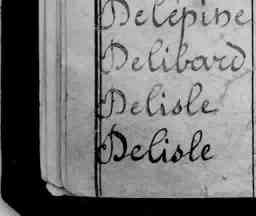 Delépine
Delibard
Delisle
Delisle